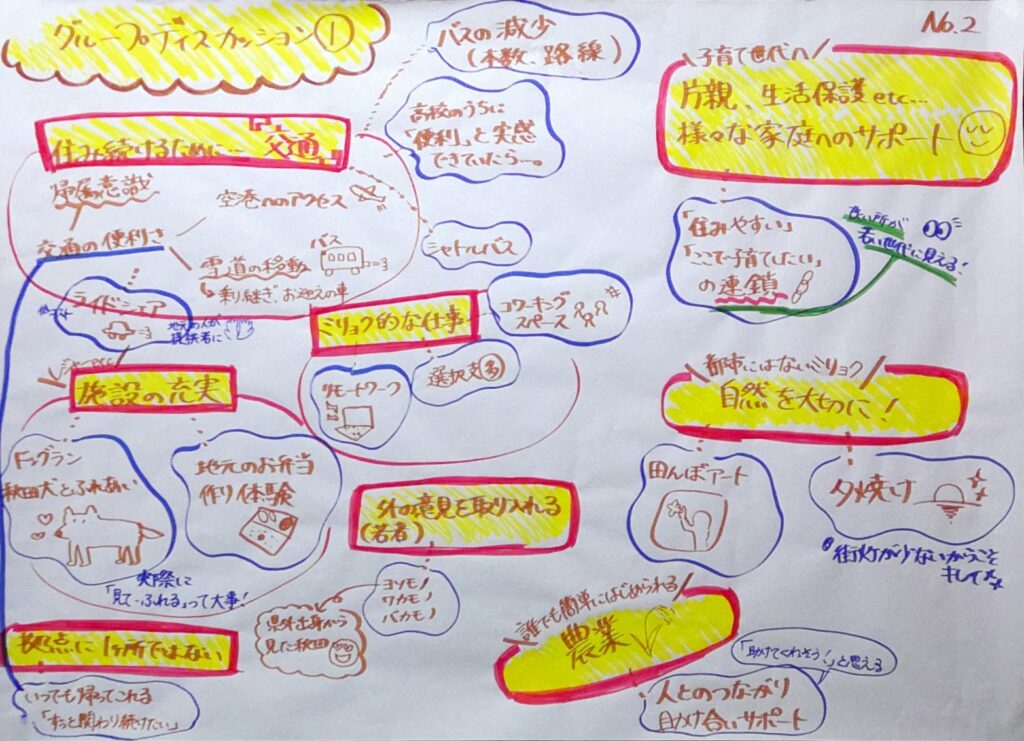 グループディスカッション①
No.2
バスの減少
(本数、路線)
高校のうちに
「便利」と実感
できていたら…。
住み続けるために… 交通
帰属意識
空港へのアクセス
交通の便利さ
雪道の移動
バス
乗り継ぎ、お迎えの車
シャトルバス
ライドシェア
地元の人が
提供者に
施設の充実
ドッグラン
秋田犬とふれあい
地元のお弁当
作り体験
実際に
「見て・ふれる」って大事!
ミリョク的な仕事
コワーキング
スペース
リモートワーク
選択支多
外の意見を取り入れる
(若者)
ヨソモノ
ワカモノ
バカモノ
県外出身から
見た秋田
拠点に1ヶ所ではない
いつでも帰ってこれる
「ずっと関わり続けたい」
子育て世代へ
片親、生活保護etc…
様々な家庭へのサポート
「住みやすい」
「ここで子育てしたい」
の連鎖
良い所が
若い世代に見える!
都市にはないミリョク
自然を大切に!
田んぼアート
夕焼け
街灯が少ないからこそ
キレイ
誰でも簡単にはじめられる
農業
「助けてくれそう!」と思える
人とのつながり
助け合いサポート